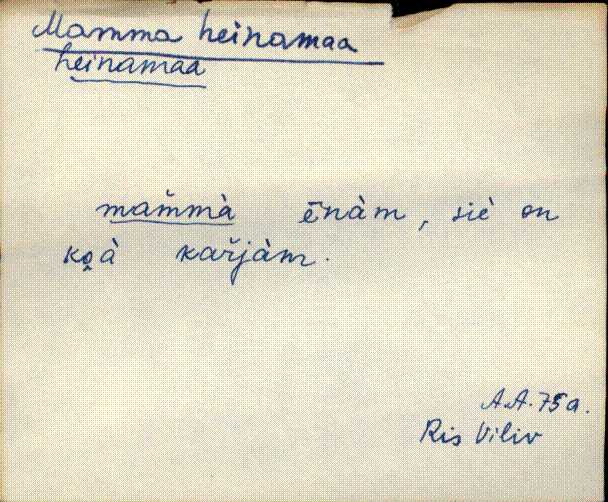 Mamma heinamaa
heinamaa
mam̆mà ēnàm, siè on
ko̭à kař̆jàm.
A.A. 75 a.
Ris Viliv